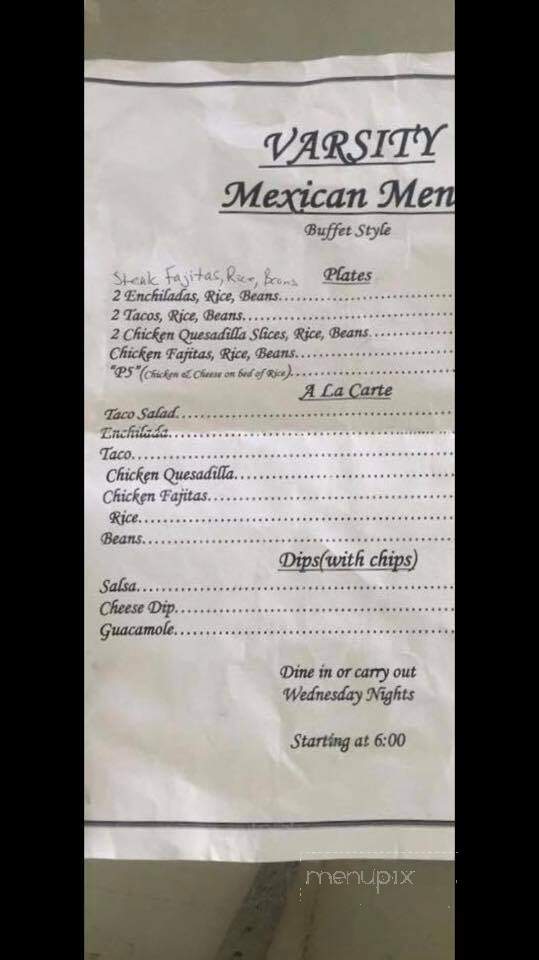 VARSITY
Mexican Men
Buffet Style
Plates
Steak Fajitas, Rice, Beans
2 Enchiladas, Rice, Beans
2 Tacos, Rice, Beans
2 Chicken Quesadilla Slices, Rice, Beans
Chicken Fajitas, Rice, Beans
"P5"(Chicken & Cheese on bed of Rice)
A La Carte
Taco Salad
Enchilada
Taco
Chicken Quesadilla
Chicken Fajitas
Rice
Beans
Dips(with chips)
Salsa
Cheese Dip
Guacamole
Dine in or carry out
Wednesday Nights
Starting at 6:00
menupix